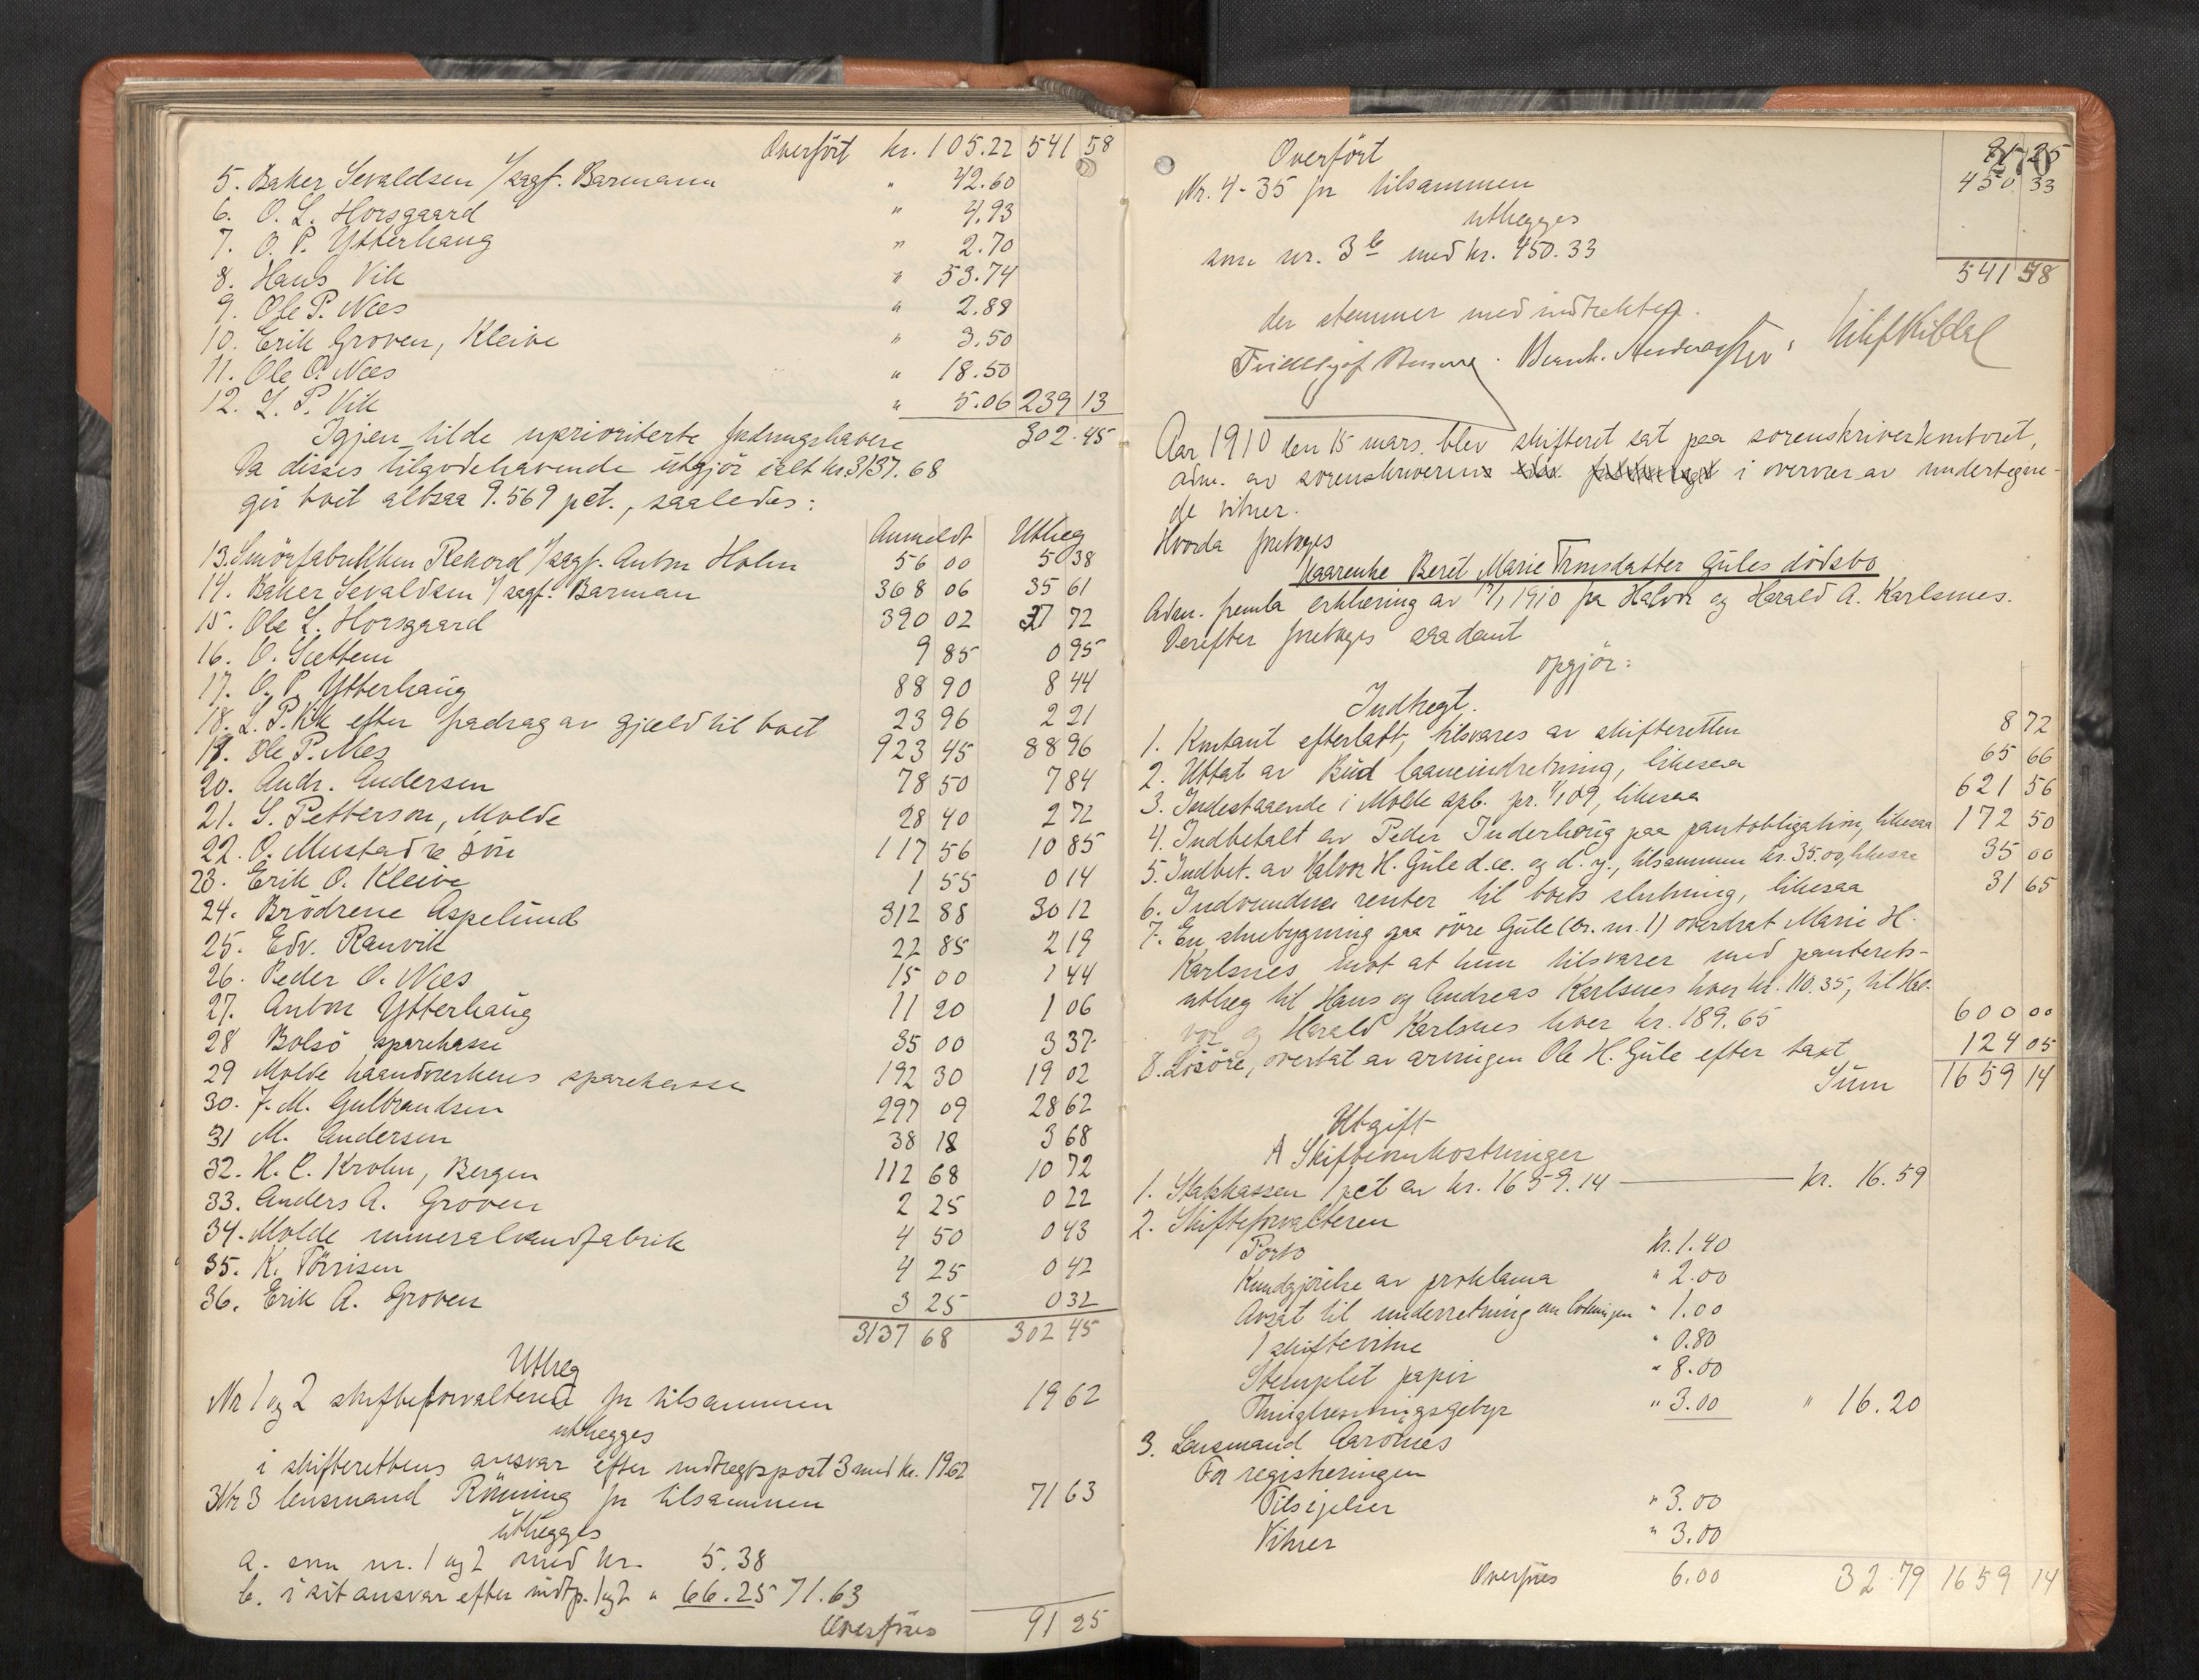 Overført kr. 105.22 541 58
5. Baker Sevaldsen v/sagf. Barmann " 42.60
6. O. L. Horsgaard " 4.93
7. O. P. Ytterhaug " 2.70
8. Hans Vik " 53.74
9. Ole P. Næs " 2.88
10. Erik Groven, Kleive " 3.50
11. Ole O. Næs " 18.50
12. L. P. Vik " 5.06 239 13
Igjen tilde uprioriterte fordringshavere 302.45
Da disses tilgodehavende utgjør ialt kr. 3137.68
gir boet altsaa 9.569 pct., saaledes:
Anmeldt Utlæg
13. Smörfabrikken Rekord v/sagf. Anton Holm 56 00 5 38
14. Baker Sevaldsen v/sagf. Barman 368 06 35 61
15. Ole L. Horsgaard 390 02 37 72
16. O. Sættem 9 85 0 95
17. O. P. Ytterhaug 88 90 8 44
18. L. P. Vik efter fradrag av gjæld til boet 23 96 2 21
19. Ole P. Nes 923 45 88 96
20. Andr. Andersen 78 50 7 84
21. S. Petterson, Molde 28 40 2 72
22. O. Mustad & søn 117 56 10 85
23. Erik O. Kleive 1 55 0 14
24. Brödrene Aspelund 312 88 30 12
25. Edv. Ranvik 22 85 2 19
26. Peder O. Næs 15 00 1 44
27. Anton Ytterhaug 11 20 1 06
28 Bolsö sparekasse 35 00 3 37
29 Molde haandverkeres sparekasse 192 30 19 02
30. J. M. Gulbrandsen 297 09 28 62
31 M. Andersen 38 18 3 68
32. H. C. Krohn, Bergen 112 68 10 72
33. Anders A. Groven 2 25 0 22
34. Molde mineralvandfabrik 4 50 0 43
35. K. Törrisen 4 25 0 42
36. Erik A. Groven 3 25 0 32
3137 68 302 45
Utlæg
Nr 1 og 2 skifteforvalteren for tilsammen 19 62
utlegges
i skifterettens ansvar efter indtægtspost 3 med kr. 19.62
Nr 3 lensmand Rönning for tilsammen 71 63
utlegges
a. som nr. 1 og 2 med kr. 5.38
b. i sit ansvar efter indtp. 1 og 2 " 66.25 71.63
Overføres 91 25
Overført 91 25
Nr. 4-35 for tilsammen 450 33
utlegges
som nr. 3 b med kr. 450.33
541 58
der stemmer med indtekten.
Aar 1910 den 15 mars. blev skifteret sat paa sorenskriverkontoret,
adm. av sorenskriveren i overvær av undertegne-
de vitner.
Hvorda foretoges
Kaarenke Beret Marie Trondsdatter Gules dödsbo
Adm. fremla erklæring av 17/1 1910 fra Halvor og Harald A. Karlsnes.
Derefter foretoges saadant
opgjör:
Indtegt.
1. Kontant efterlatt, tilsvares av skifteretten 8 72
2. Uttat av Bud laaneindretning, likesaa 65 66
3. Indestaaende i Molde spb. pr. 1/1 09, likesaa 621 56
4. Indbetalt av Peder Inderhaug paa pantobligation, likesaa 172 50
5. Indbet. av Halvor H. Gule d.æ. og d. y., tilsammen kr. 35.00, likesaa 35 00
6. Indvundne renter til boets slutning, likesaa 31 65
7. En stuebygning paa övre Gule (br. nr. 1) overdrat Marie H.
Karlsnes imot at hun tilsvarer med panterets-
utlæg til Hans og Andreas Karlsnes hver kr. 110.35, til Hal-
vor og Harald Karlsnes hver kr. 189.65 600 00
8. Lösöre, overtat av arvingen Ole H. Gule efter takst 124 05
Sum 1659 14
Utgift
A Skifteomkostninger
1. Statskassen 1 pct av kr. 1659.14 kr. 16.59
2. Skifteforvalteren
Porto kr. 1.40
Kundgjörelse av proklama " 2.00
Avsat til underretning om lodningen " 1.00
1 skiftevitne " 0.80
Stemplet papir " 8.00
Thinglæsningsgebyr " 3.00 " 16.20
3. Lensmand Aarönæs
For registreringen
Tilsigelser " 3.00
Vitner " 3.00
Overføres 6.00 32.79 1659 14